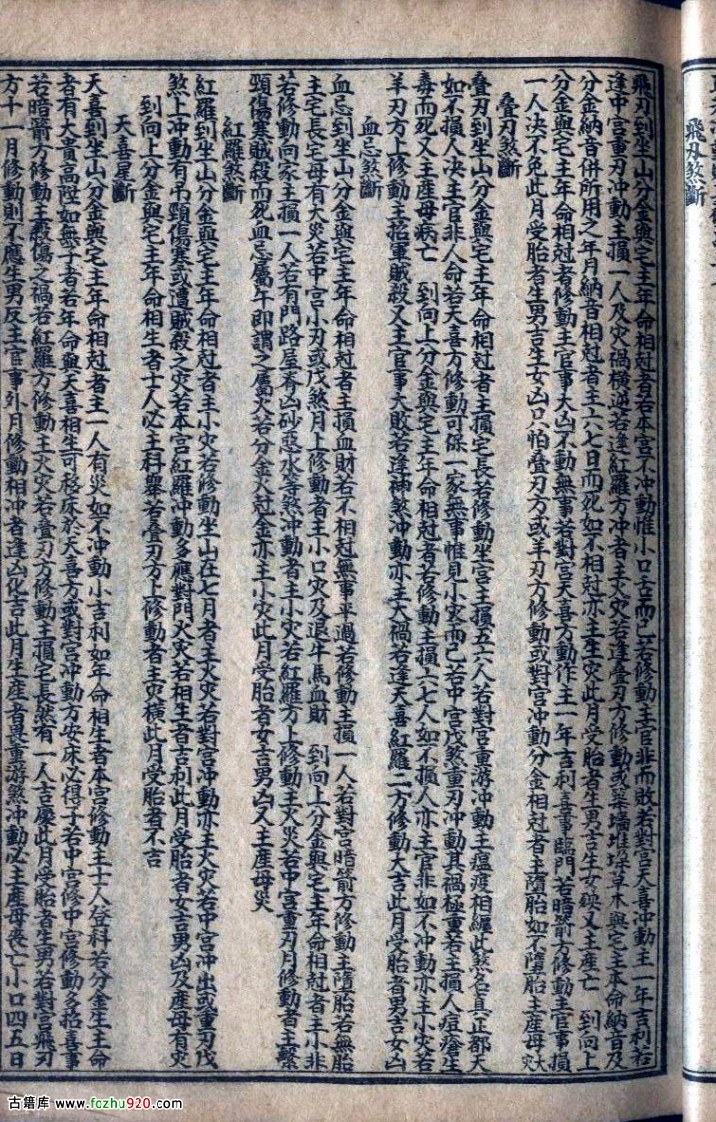 飛刃煞斷
飛刃到坐山分金與宅主年命相尅者若本宮不冲動惟小口舌而已若修動主官非而敗若對宮天喜冲動主一年吉利若
逢中宮重刃冲動主損一人及灾禍橫逆若逢紅羅方冲者主火灾若逢叠刃方修動或築墻堆垛草木與宅主本命納音及
分金納音併所用之年月納音相尅者主六七日而死如不相尅亦主生灾此月受胎者生男吉生女又主產亡 到向上
分金與宅主年命相尅者修動主官事大凶不動無事若對宮天喜方動作主一年吉利喜事臨門若暗箭方修動主官事損
一人决不免此月受胎者生男吉生女凶只怕叠刃方或羊刃方修動或對宮冲動分金相尅者主墮胎如不墮胎主產母大灾
叠刃煞斷
叠刃到坐山分金與宅主年命相尅者主損宅長若修動坐宮主損五六人若對宮重游冲動主瘟疫相纏此煞名真正都天
如不損人决主官非人命若天喜方修動可保一家無事惟見小灾而已若中宮戊煞重刃冲動其禍極重若主損人痘瘡生
毒而死又主產母病亡 到向上分金與宅主年命相尅者若修動主損六七人如不損人亦主官非如不冲動亦主小灾若
羊刃方上修動主招軍賊殺又主官事大敗若逢神煞冲動亦主大禍若逢天喜紅羅二方修動大吉此月受胎者男吉女凶
血忌煞斷
血忌到坐山分金與宅主年命相尅者主損血財若不相尅無事平過若修動主損一人若對宮暗箭方修動主墮胎若無胎
主宅長宅母有大灾若中宮小刃或戊煞月上修動者主小口灾及退牛馬血財 到向上分金與宅主年命相尅者主小非
若修動向家主損一人若有門路屋脊凶砂惡水等煞冲動者主小灾若紅羅方上修動主火災若中宮重刃月修動者主繫
頸傷寒賊殺而死血忌屬午即謂之屬火若分金火尅金亦主小灾此月受胎者女吉男凶又主產母灾
紅羅煞斷
紅羅到坐山分金與宅主年命相尅者主小灾若修動坐山在七月者主火灾若對宮冲動亦主火灾若中宮冲出或重刃戊
煞上冲動有吊頸傷寒或遭賊殺之灾若本宮紅羅冲動多應對門火灾若相生者吉利此月受胎者女吉男凶及產母有灾
到向上分金與宅主年命相生者士人必主科舉若叠刃方上修動者主灾橫此月受胎者不吉
天喜星斷
天喜到坐山分金與宅主年命相尅者主一人有災如不冲動小吉利如年命相生者本宮修動主士人登科若分金生主命
者有大貴高陞如無子者若年命與天喜相生可移床於天喜方或對宮冲動方安床必得子若中宮修中宮修動多招喜事
若暗箭方修動主殺傷之禍若紅羅方修動主火灾若叠刃方修動主損宅長然有一人吉慶此月受胎者生男若對宮飛刃
方十一月修動則不應生男反主官事外月修動相冲者逢凶化吉此月生產者畏重游煞冲動必主產母喪亡小口四五日
古籍库 www.fczhu920.com